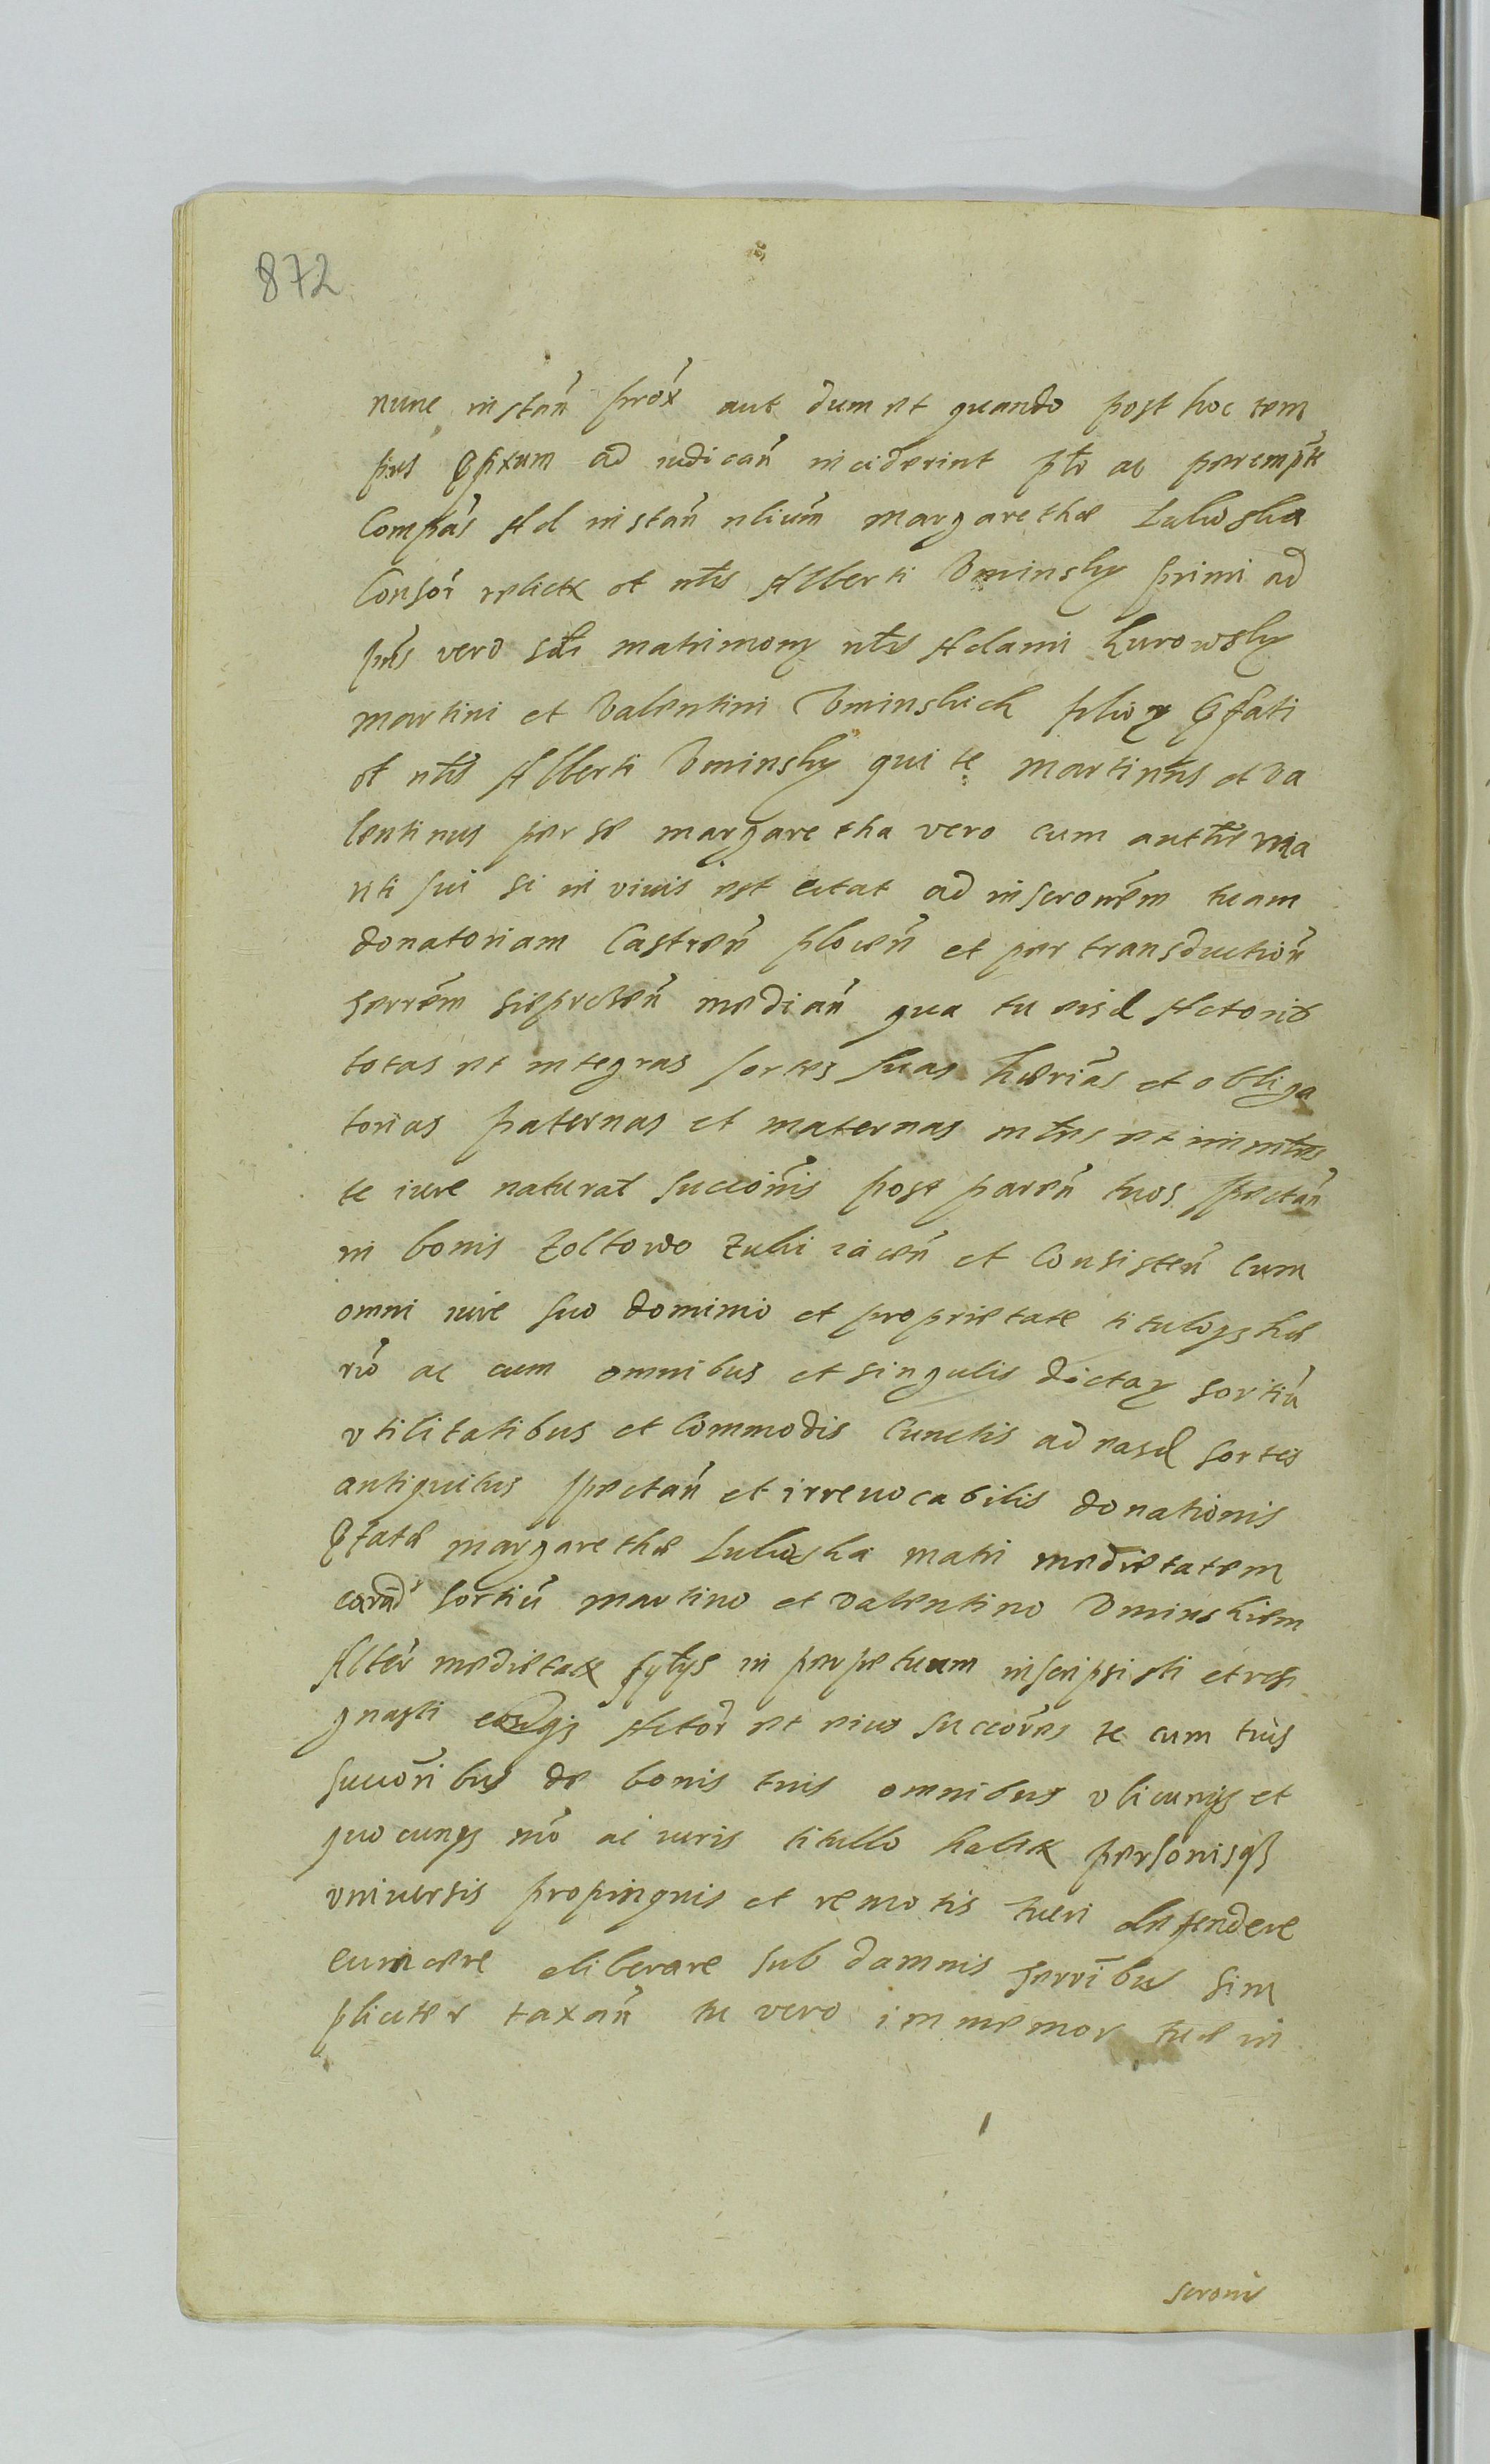 872
nunc instań próx aut dum et quando post hoc tem
pus ad iudicań inciderint ptr ac perempt
Compás Ad instań nliúm margarethæ
Consór relictæ ol nłis Alberti Vminsky primi ad
pns vero sdi matrimony nłis Adami Kurowsky
martini et Valentini Vminskich
ol nłis Alberti Vminsky qui te martinus et Va
lentinus per se margaretha vero cum ma
riti sui si in viuis est citat ad inscronem tuam
donatoriam Castreń ploceń et per transductioń
terrem mediań qua tu eisd Actorib
totas et integras sortes suas hærias et obliga
torias paternas et maternas
te iure natural succionis post pareń tuos spectań
in bonis Zoltowo iaceń et Consisteń Cum
omni iure suo dominio et proprietate tituloqs hæ
rio ac cum omnibus et singulis dictaɤ sortiu
vtilitatibus et Commodis Cunctis ad easd sortes
antiquitus spectań et irreuocabilis donationis
margarethæ matri medietatem
sortiú martino et Valentino Vminskiem
Alter medietatæ in perpetuum inscripsisti et resi
gnasti Actor et eius succores te cum tuis
succoribus de bonis tuis omnibus vbicunqs et
quocunqs mo ac iuris titullo habit personisqs
vniuersis propinquis et remotis tueri defendere
euincere eliberare sub damnis terribus sim
pliciter taxań tu vero immemor tuæ in
scronis